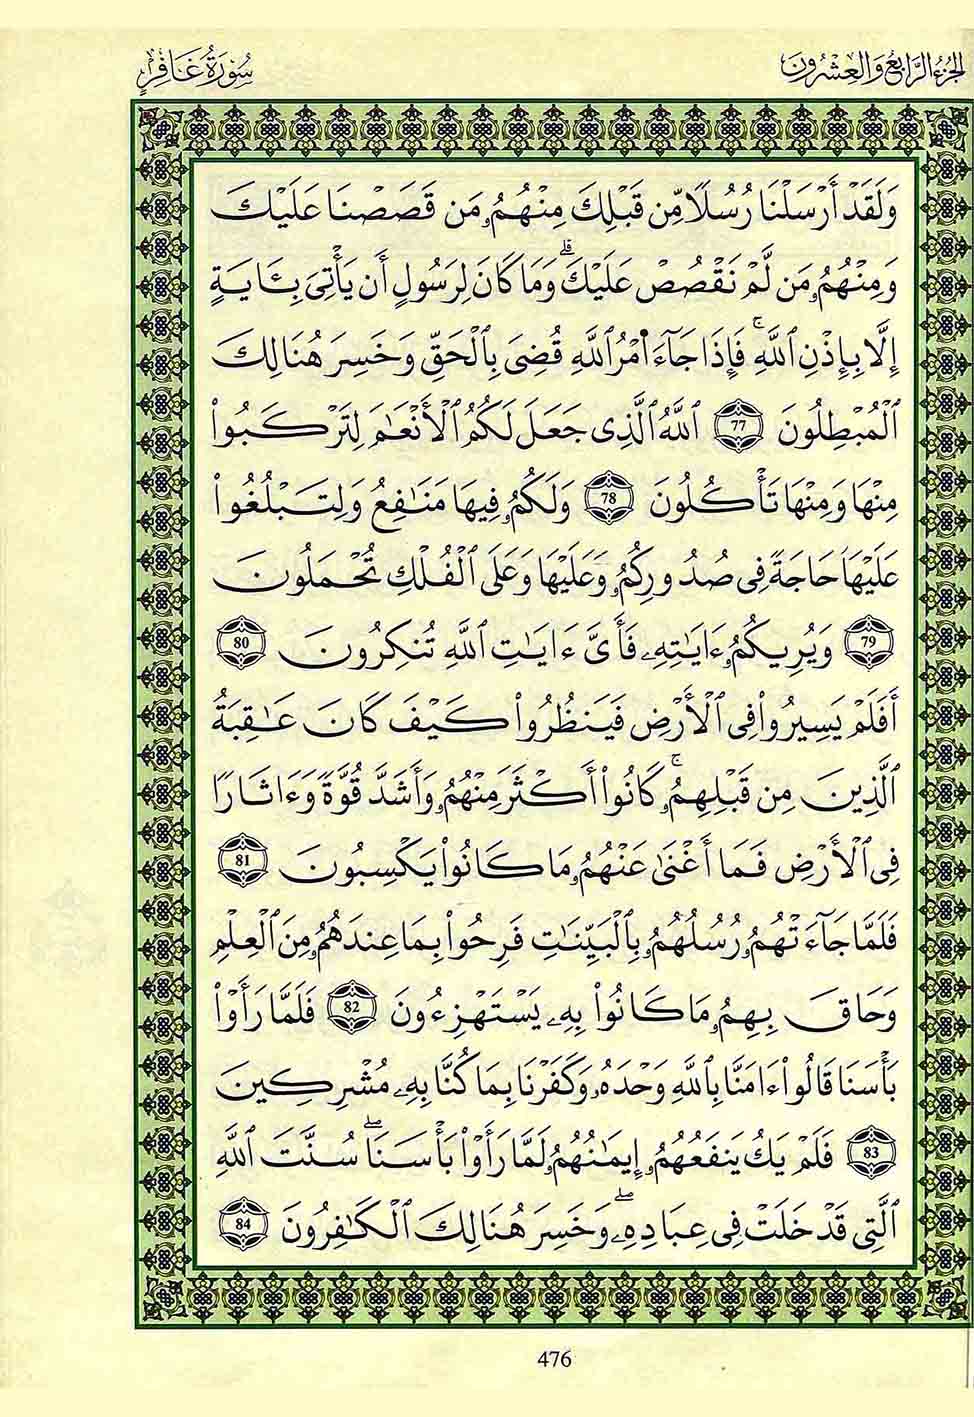 الجزء الرابع والعشرون
سورة غافر
وَلَقَدْ أَرْسَلْنَا رُسُلًا مِّن قَبْلِكَ مِنْهُمُۥ مَن قَصَصْنَا عَلَيْكَ
وَمِنْهُمُۥ مَن لَّمْ نَقْصُصْ عَلَيْكَ ۗ وَمَا كَانَ لِرَسُولٍ أَن يَأْتِىَ بِـَٔايَةٍ
إِلَّا بِإِذْنِ ٱللَّهِ ۚ فَإِذَا جَآءَ اَمْرُ ٱللَّهِ قُضِىَ بِٱلْحَقِّ وَخَسِرَ هُنَالِكَ
ٱلْمُبْطِلُونَ 77 ٱللَّهُ ٱلَّذِى جَعَلَ لَكُمُ ٱلْأَنْعَٰمَ لِتَرْكَبُوا۟
مِنْهَا وَمِنْهَا تَأْكُلُونَ 78 وَلَكُمُۥ فِيهَا مَنَٰفِعُ وَلِتَبْلُغُوا۟
عَلَيْهَا حَاجَةً فِى صُدُورِكُمُۥ وَعَلَيْهَا وَعَلَى ٱلْفُلْكِ تُحْمَلُونَ
79 وَيُرِيكُمُۥ ءَايَٰتِهِۦ فَأَىَّ ءَايَٰتِ ٱللَّهِ تُنكِرُونَ 80
أَفَلَمْ يَسِيرُوا۟ فِى ٱلْأَرْضِ فَيَنظُرُوا۟ كَيْفَ كَانَ عَٰقِبَةُ
ٱلَّذِينَ مِن قَبْلِهِمُۥ ۚ كَانُوا۟ أَكْثَرَ مِنْهُمُۥ وَأَشَدَّ قُوَّةً وَءَاثَارًا
فِى ٱلْأَرْضِ فَمَا أَغْنَىٰ عَنْهُمُۥ مَا كَانُوا۟ يَكْسِبُونَ 81
فَلَمَّا جَآءَتْهُمُۥ رُسُلُهُمُۥ بِٱلْبَيِّنَٰتِ فَرِحُوا۟ بِمَا عِندَهُمُۥ مِنَ ٱلْعِلْمِ
وَحَاقَ بِهِمُۥ مَا كَانُوا۟ بِهِۦ يَسْتَهْزِءُونَ 82 فَلَمَّا رَأَوْا۟
بَأْسَنَا قَالُوا۟ ءَامَنَّا بِٱللَّهِ وَحْدَهُۥ وَكَفَرْنَا بِمَا كُنَّا بِهِۦ مُشْرِكِينَ
83 فَلَمْ يَكُ يَنفَعُهُمُۥ إِيمَٰنُهُمُۥ لَمَّا رَأَوْا۟ بَأْسَنَا ۖ سُنَّتَ ٱللَّهِ
ٱلَّتِى قَدْ خَلَتْ فِى عِبَادِهِۦ ۖ وَخَسِرَ هُنَالِكَ ٱلْكَٰفِرُونَ 84
476